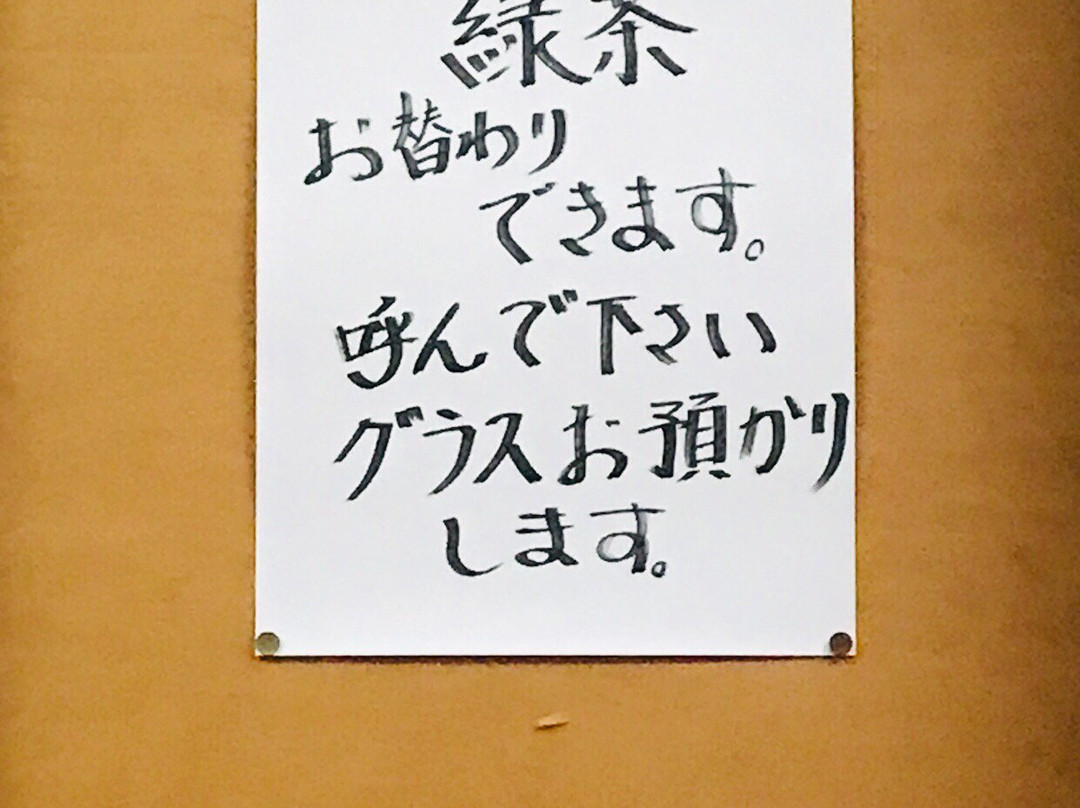 緑茶
お替わり
できます。
呼んで下さい
グラスお預かり
します。